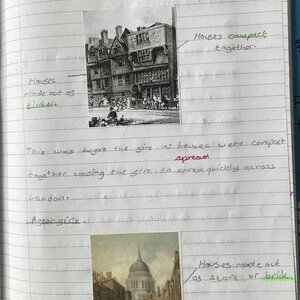 Houses compact
together.
Houses
made out of
timber.
This was before the fire as houses were compact
spread
together causing the fire to spread quickly across
London.
After fire.
Houses made out
of stone or brick